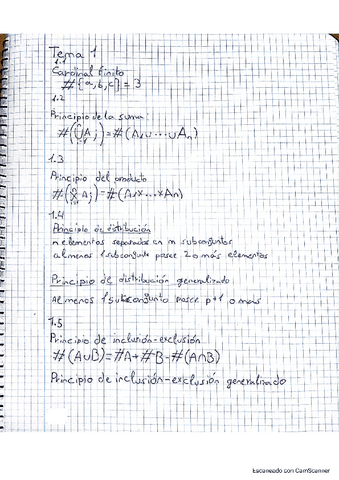 Tema 1
1.1
Cardinal finito
#{a,b,c} = 3
1.2
Principio de la suma
#(∪Aⱼ) = #(A₁∪...∪Aₙ)
1.3
Principio del producto
#(×Aⱼ) = #(A₁×...×Aₙ)
1.4
Principio de distribución
n elementos separados en m subconjuntos
al menos 1 subconjunto posee 2 o más elementos
Principio de distribución generalizado
Al menos 1 subconjunto posee p+1 o más
1.5
Principio de inclusión-exclusión
#(A∪B) = #A + #B - #(A∩B)
Principio de inclusión-exclusión generalizado
Escaneado con CamScanner